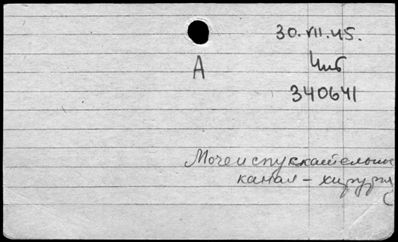 30.VII.45.
А
Чит
340641
Мочеиспускательный
канал – хирург